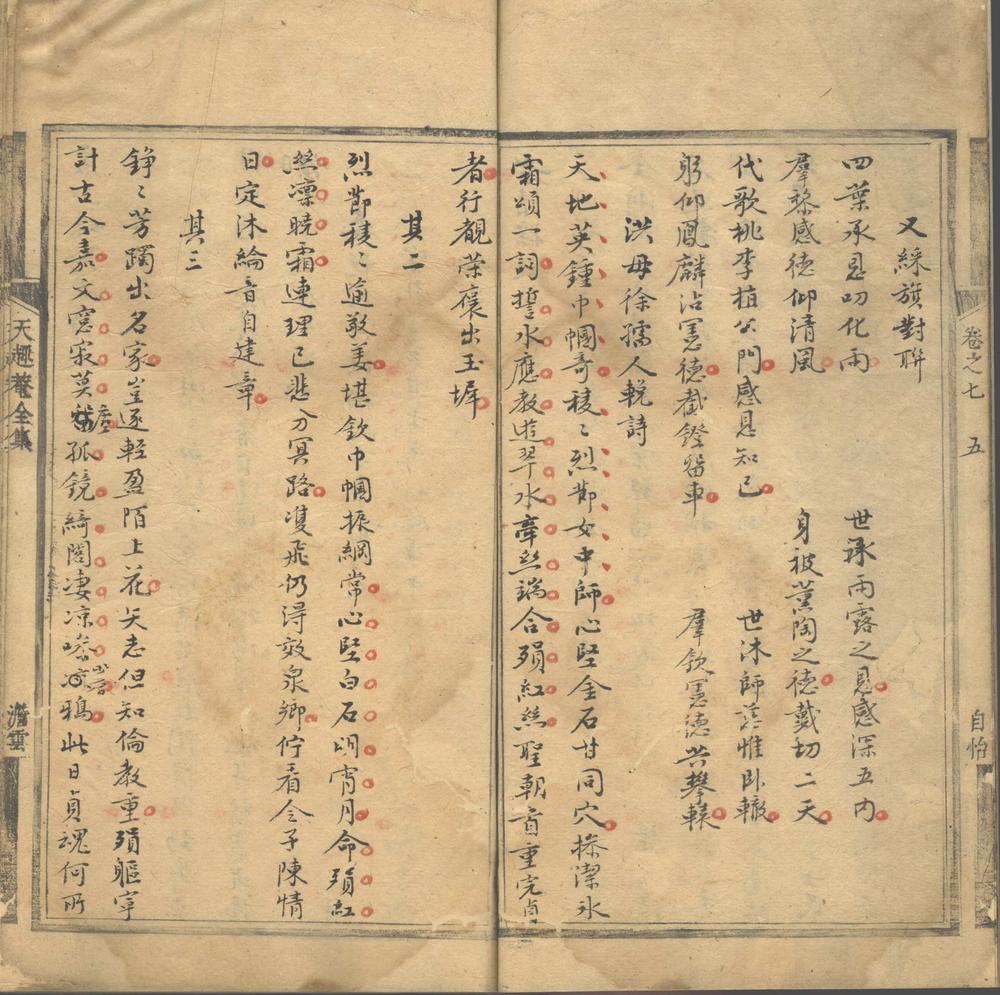 卷之七 五 自怡
又綵旗對聯
四葉承恩叨化雨 世承雨露之恩感深五內
羣黎感德仰清風 身被薰陶之德戴切二天
代歌桃李植公門感恩知己 世沐師范惟臥轍
躬仰鳳麟沾憲德截鐙留車 羣欽憲德共攀轅
洪母徐孺人輓詩
天地英鍾巾幗奇稜〻烈節女中師心堅金石甘同穴操潔氷
霜頌一詞誓水應教逰泮水牽絲端合殞紅絲聖朝首重完貞
者行觀榮褒出玉墀
其二
烈節稜〻逾敬姜堪欽巾幗振綱常心堅白石明宵月命殞紅
絲凜曉霜連理已悲分冥路雙飛仍得效泉鄉佇看令子陳情
日定沐綸音自建章
其三
錚〻芳躅出名家豈逐輕盈陌上花矢志但知倫教重殞軀寧
計古今嘉文窓寂莫孤鏡綺閣凄凉鴉此日貞魂何所
天趣菴全集 澹雲